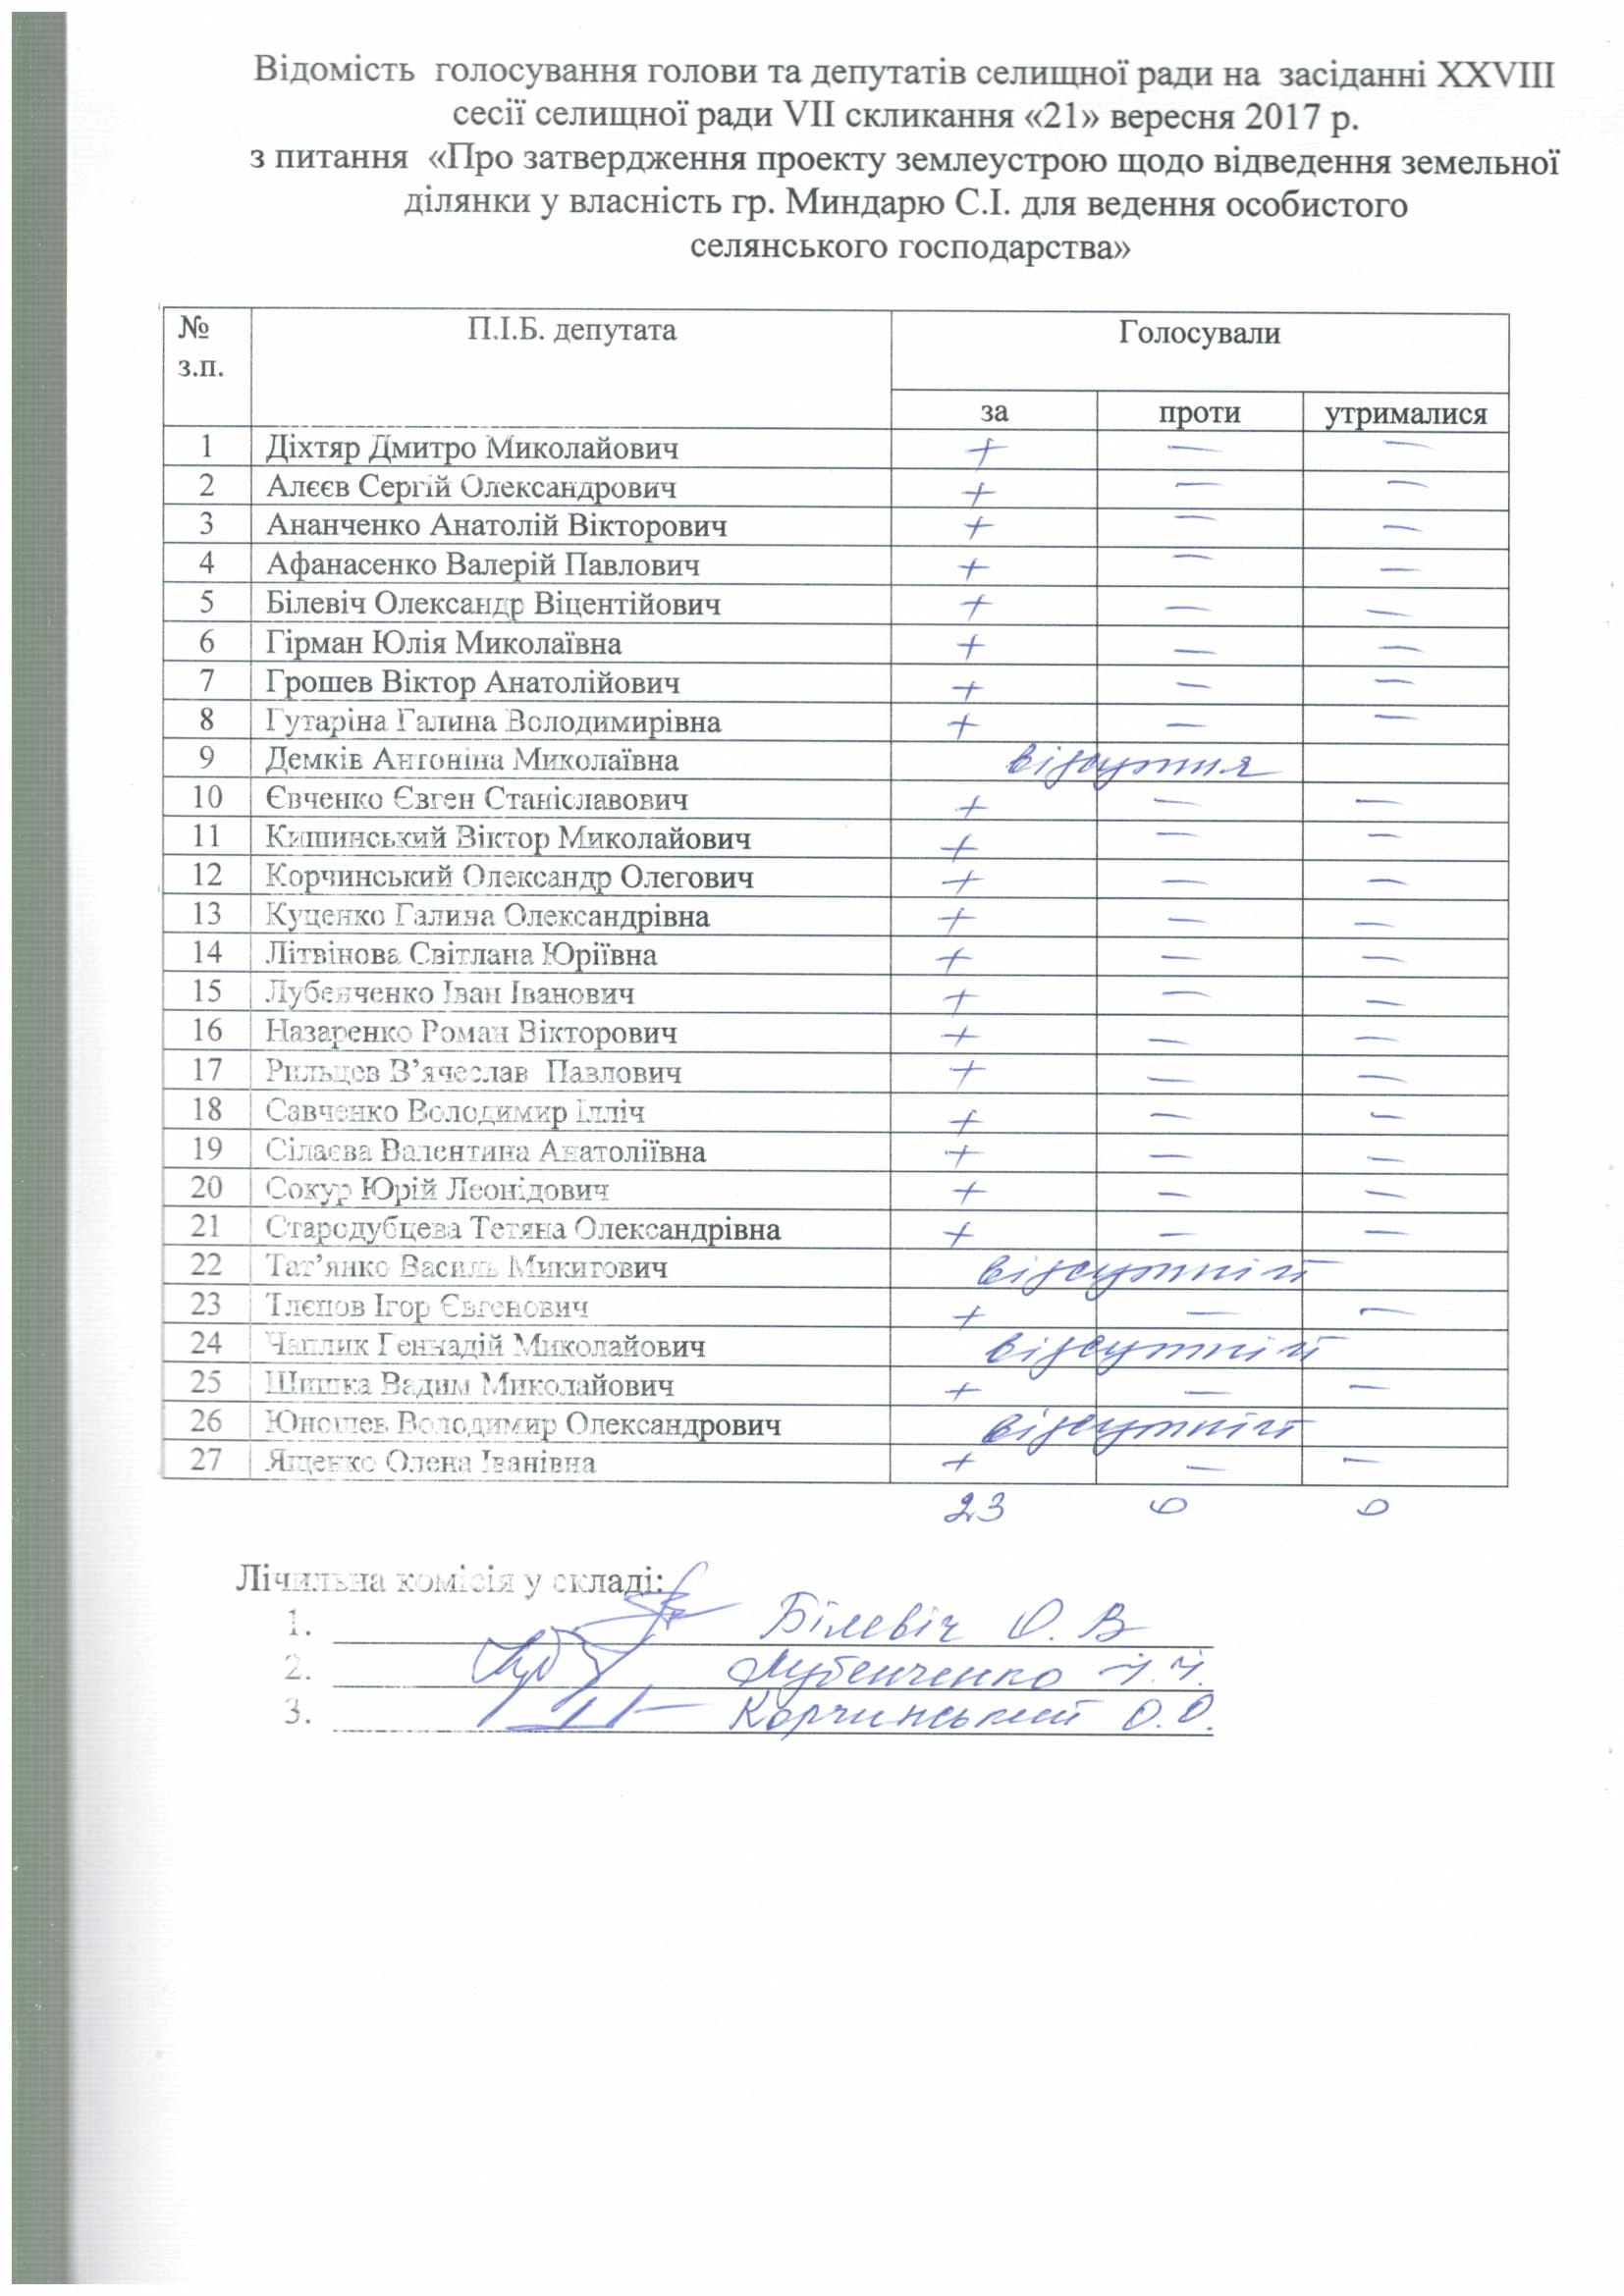 Відомість голосування голови та депутатів селищної ради на засіданні XXVIII
сесії селищної ради VII скликання «21» вересня 2017 р.
з питання «Про затвердження проекту землеустрою щодо відведення земельної
ділянки у власність гр. Миндарю С.І. для ведення особистого
селянського господарства»
№ з.п. П.І.Б. депутата Голосували
за проти утрималися
1 Діхтяр Дмитро Миколайович + — —
2 Алєєв Сергій Олександрович + — —
3 Ананченко Анатолій Вікторович + — —
4 Афанасенко Валерій Павлович + — —
5 Білевіч Олександр Віцентійович + — —
6 Гірман Юлія Миколаївна + — —
7 Грошев Віктор Анатолійович + — —
8 Гутаріна Галина Володимирівна + — —
9 Демків Антоніна Миколаївна відсутня
10 Євченко Євген Станіславович + — —
11 Кишинський Віктор Миколайович + — —
12 Корчинський Олександр Олегович + — —
13 Куценко Галина Олександрівна + — —
14 Літвінова Світлана Юріївна + — —
15 Лубенченко Іван Іванович + — —
16 Назаренко Роман Вікторович + — —
17 Рильцев В’ячеслав Павлович + — —
18 Савченко Володимир Ілліч + — —
19 Сілаєва Валентина Анатоліївна + — —
20 Сокур Юрій Леонідович + — —
21 Стародубцева Тетяна Олександрівна + — —
22 Тат’янко Василь Микитович відсутній
23 Тлєпов Ігор Євгенович + — —
24 Чаплик Геннадій Миколайович відсутній
25 Шишка Вадим Миколайович + — —
26 Юношев Володимир Олександрович відсутній
27 Ященко Олена Іванівна + — —
23 0 0
Лічильна комісія у складі:
1. Білевіч О. В
2. Лубенченко І.І.
3. Корчинський О.О.